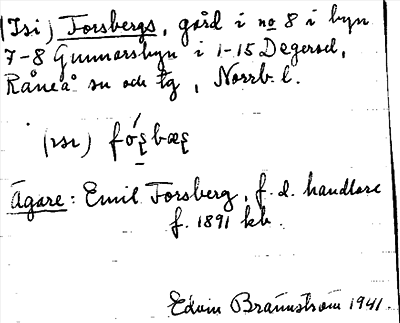 (Isi) Forsbergs, gård i no 8 i byn
7-8 Gunnarsbyn i 1-15 Degersel,
Råneå sn och tg, Norrb. l.
(ısı) fó̱ʂbæʂ
Ägare: Emil Forsberg, f. d. handlare
f. 1891 kb.
Edvin Brännström 1941.